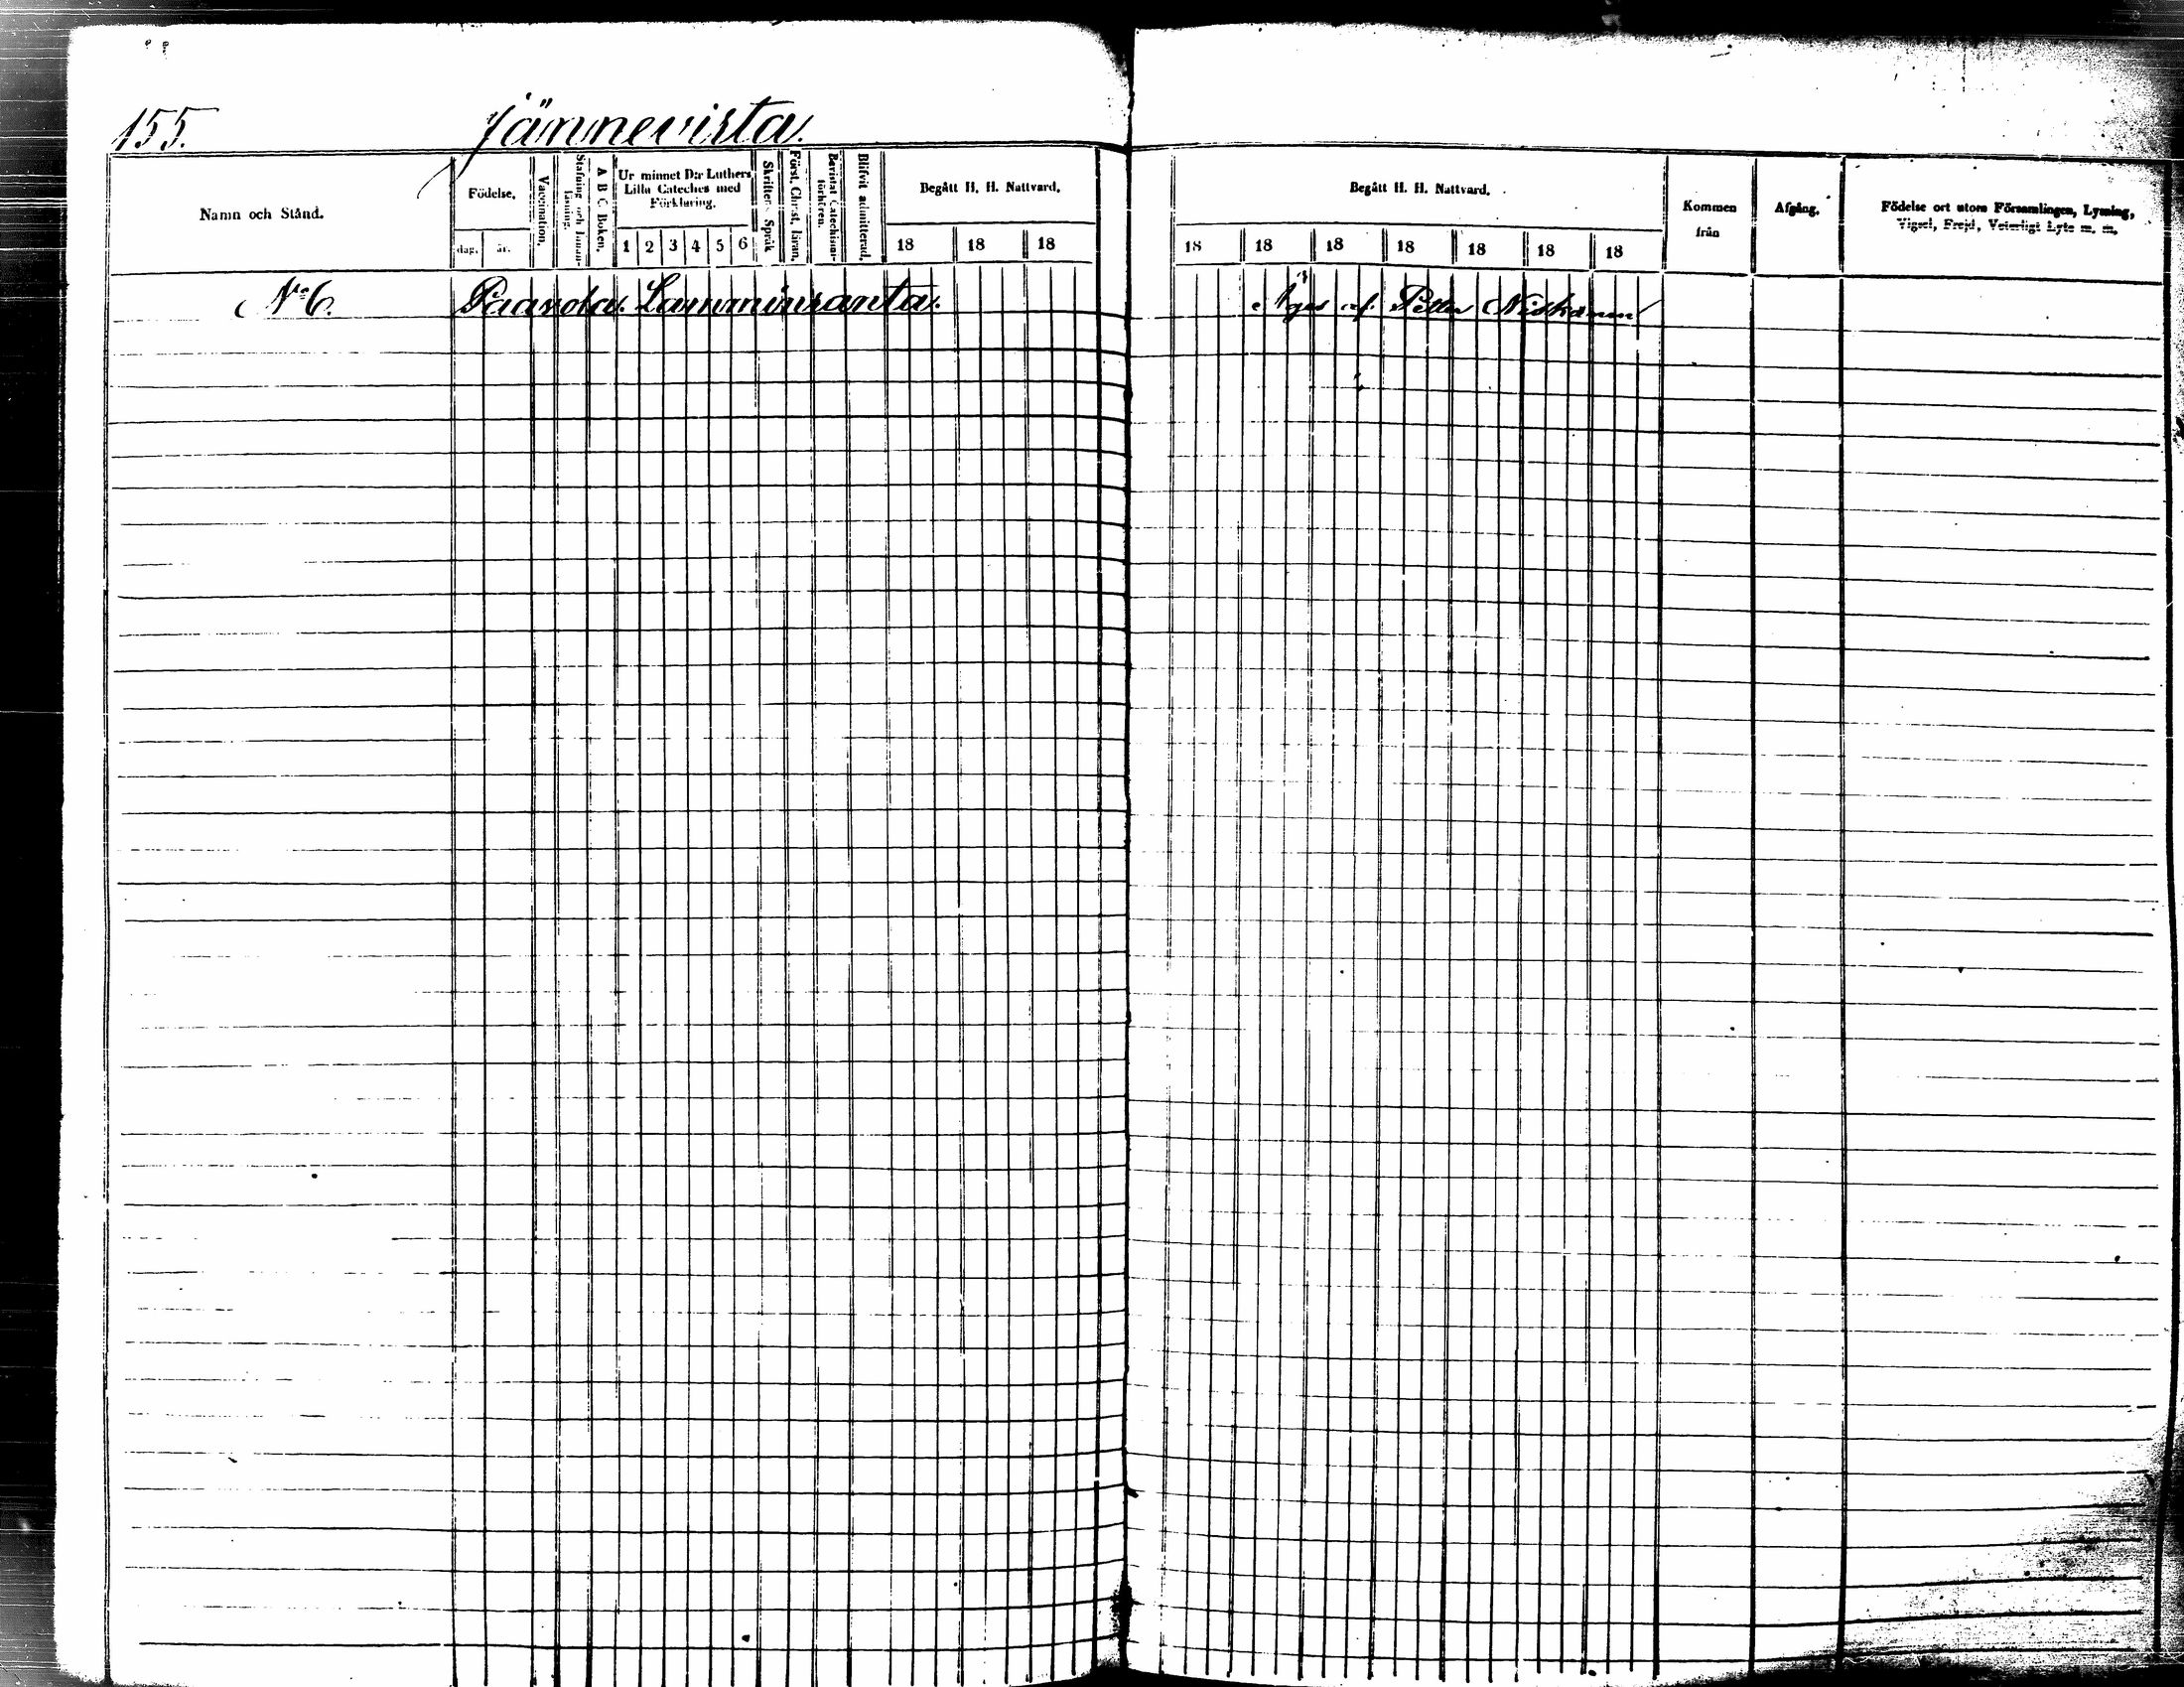 155. Jännevirta.
Namn och Stånd. Födelse. dag. år. Vaccination. Stafning och Innan-läsning. A B C Boken. Ur minnet D:r Luthers Lilla Cateches med Förklaring. 1 2 3 4 5 6 Skriftens Språk Först. Christ. läran. Bevistat Catechismi-förhören. Blifvit admitterad. Begått H. H. Nattvard. 18 18 18
Begått H. H. Nattvard. 18 18 18 18 18 18 18 Kommen från Afgång. Födelse ort utom Församlingen, Lysning, Vigsel, Frejd, Veterligt Lyte m. m.
No 6. Paavola. Lamminranta. Äges af Petter Niskanen